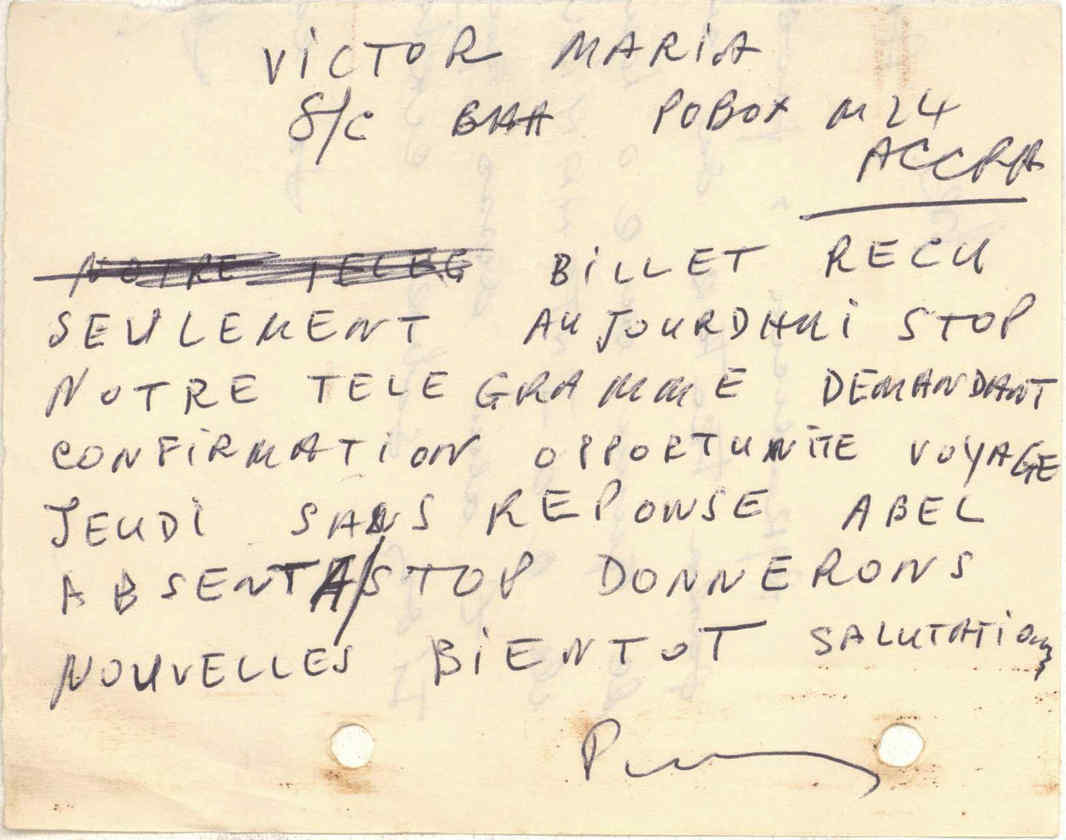 VICTOR MARIA
S/C BAA POBOX M24
ACCRA
NOTRE TELEG BILLET RECU
SEULEMENT AUJOURDHUI STOP
NOTRE TELEGRAMME DEMANDANT
CONFIRMATION OPPORTUNITE VOYAGE
JEUDI SANS REPONSE ABEL
ABSENT STOP DONNERONS
NOUVELLES BIENTOT SALUTATIONS